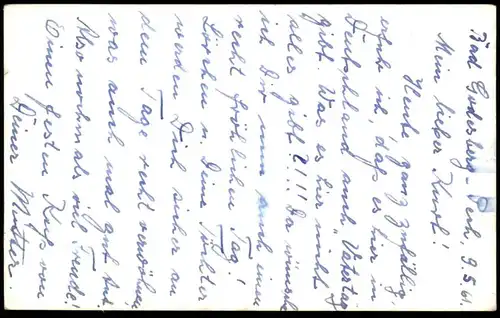 Bad Godesberg-Pech, 9.5.61.
Mein lieber Kurt!
Heute, ganz zufällig,
erfuhr ich, daß es hier in
Deutschland auch "Vatertag"
gibt. Was es hier nicht
alles gibt?!!! Da wünsche
ich Dir nun auch einen
recht fröhlichen Tag!
Lörchen u. Deine Töchter
werden Dich sicher an
dem Tage recht verwöhnen
was auch mal gut tut.
Also nochmals viel Freude!
Einen festen Kuß von
Deiner Mutter.